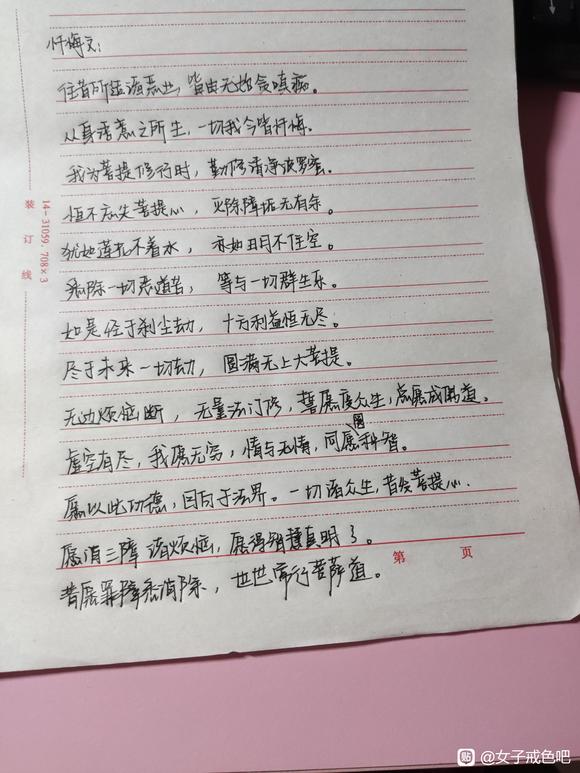 忏悔文：
往昔所造诸恶业，皆由无始贪嗔痴。
从身语意之所生，一切我今皆忏悔。
我为菩提修行时，勤修清净波罗蜜。
恒不忘失菩提心，灭除障垢无有余。
犹如莲花不着水，亦如日月不住空。
悉除一切恶道苦，等与一切群生乐。
如是经于刹尘劫，十方利益恒无尽。
尽于未来一切劫，圆满无上大菩提。
无边烦恼断，无量法门修，誓愿度众生，总愿成佛道。
虚空有尽，我愿无穷，情与无情，同圆种智。
愿以此功德，回向于法界。一切诸众生，普发菩提心。
愿消三障诸烦恼，愿得智慧真明了。
普愿罪障悉消除，世世常行菩萨道。
第 页
装订线
14-31059.708×3
贴 @女子戒色吧